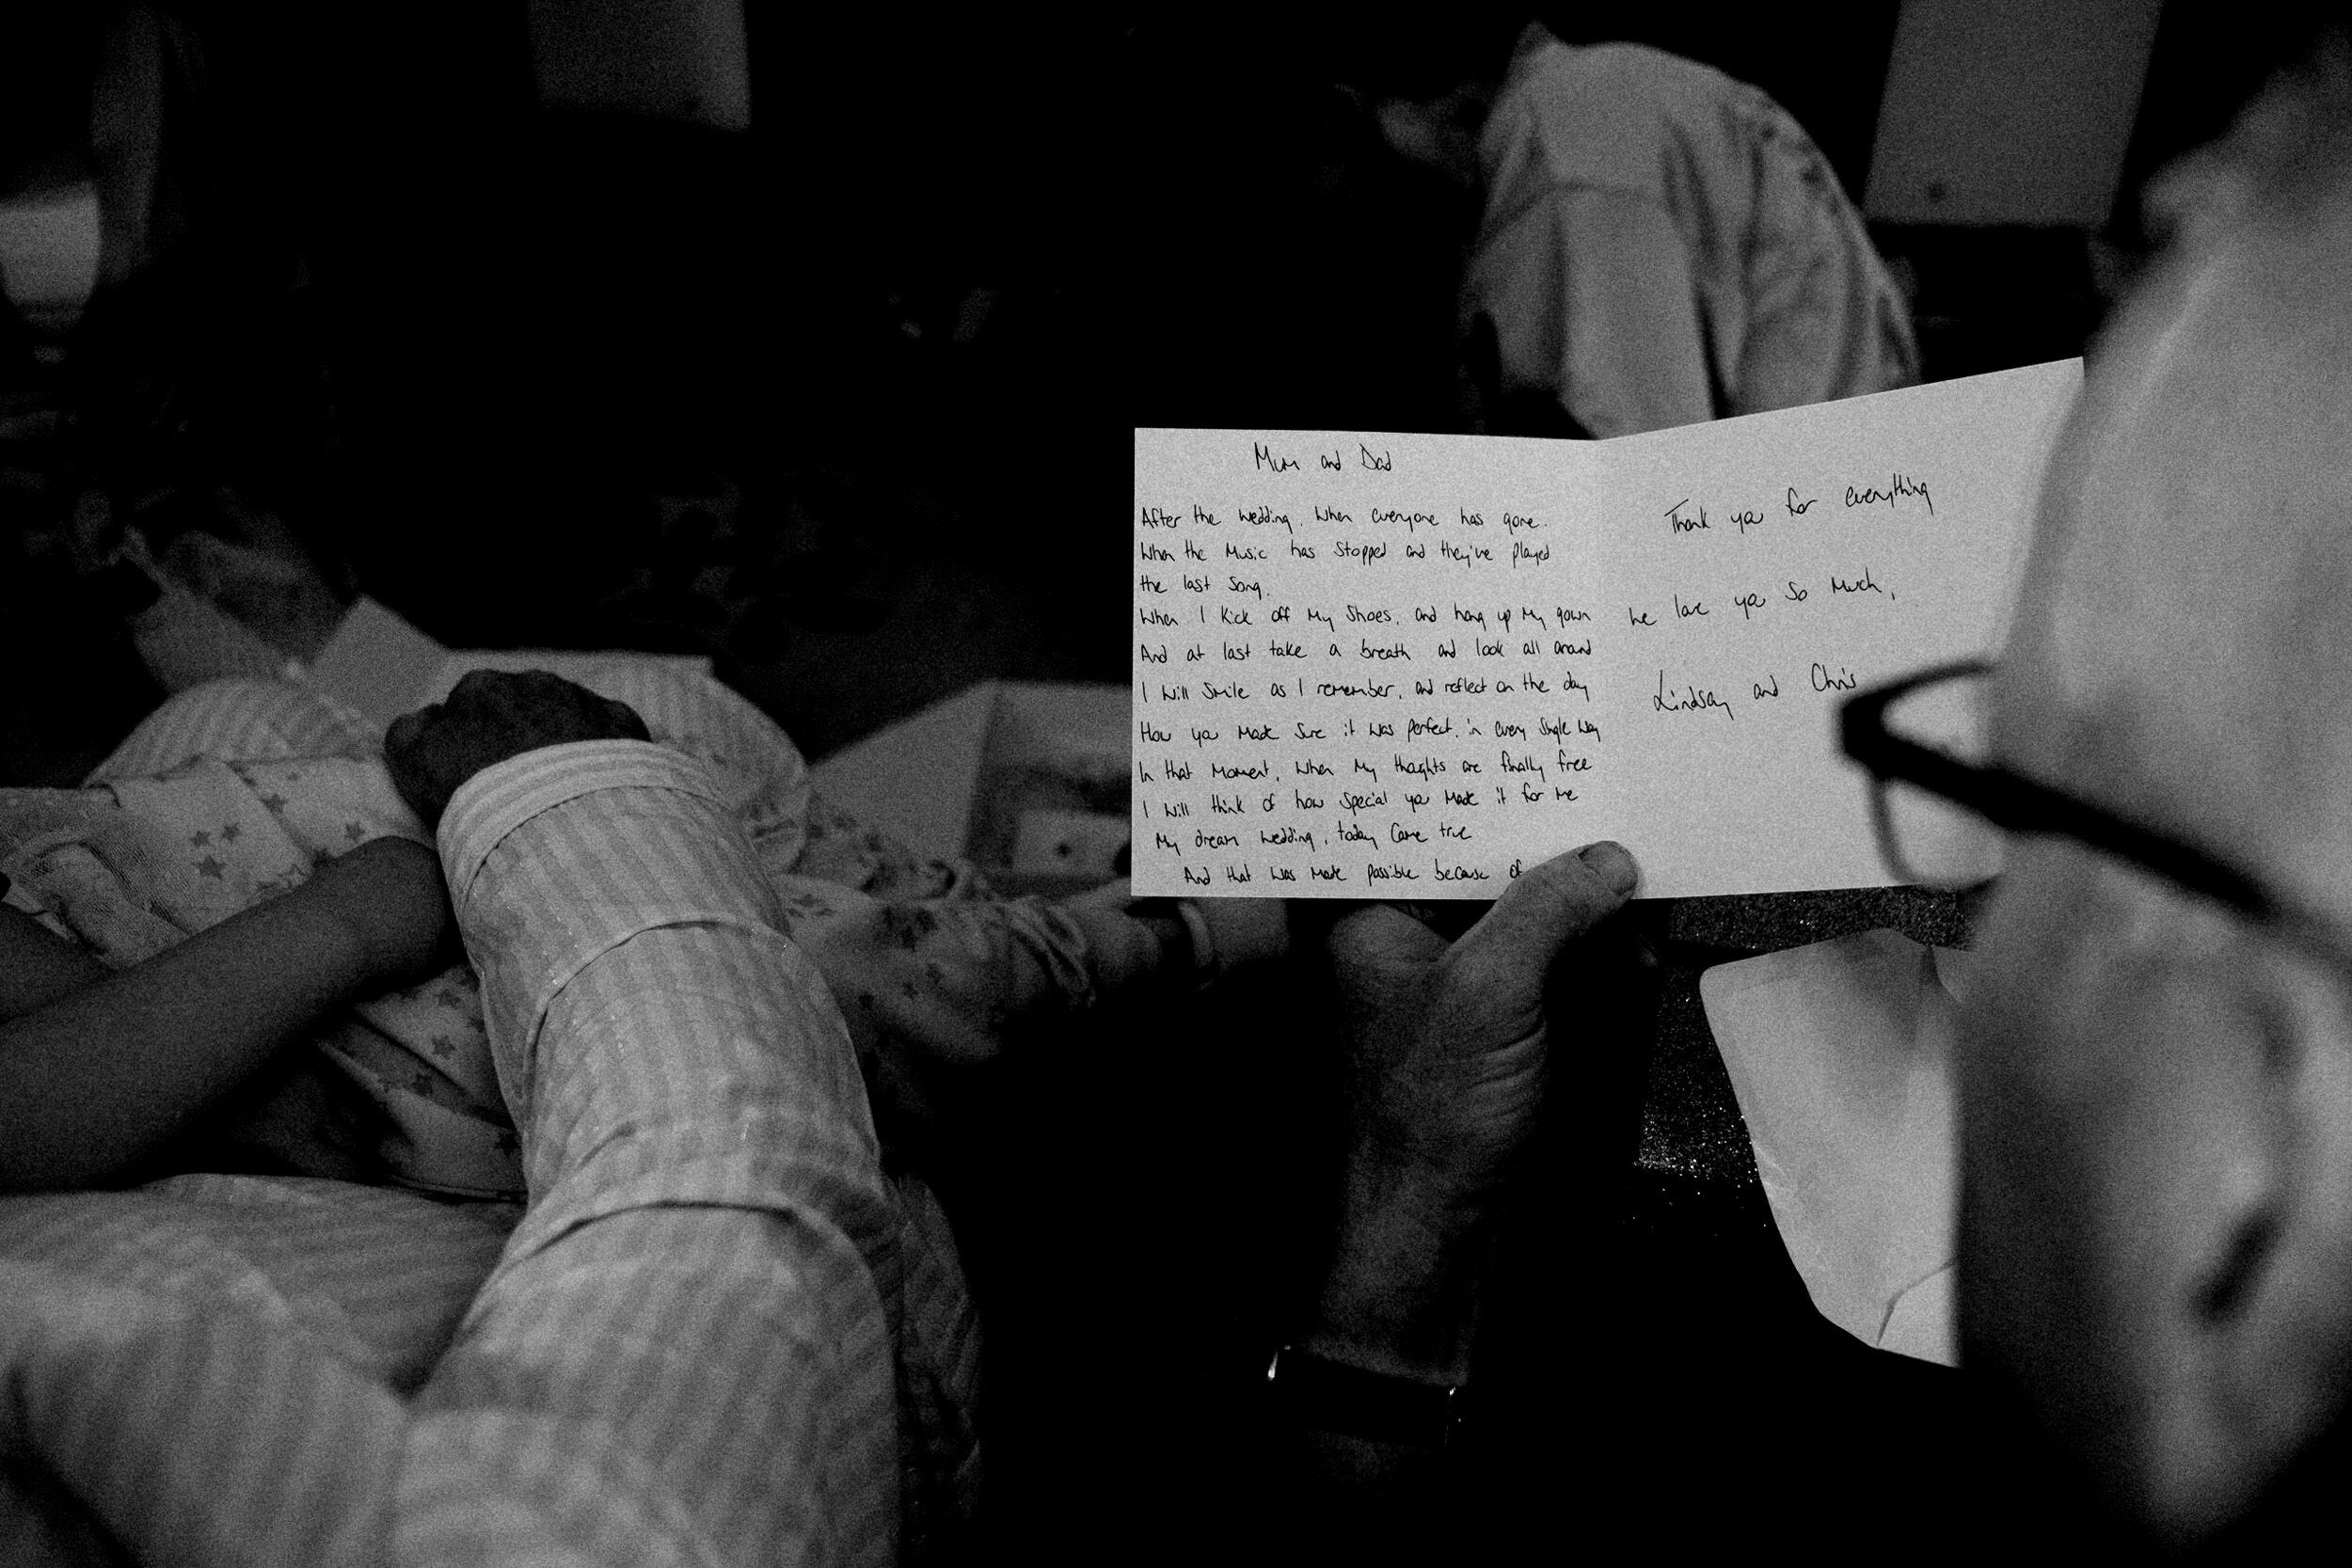 Mum and Dad
After the wedding, when everyone has gone.
When the Music has stopped and they've played
the last song.
When I kick off my shoes, and hang up my gown
And at last take a breath and look all around
I will smile as I remember, and reflect on the day
How you made sure it was perfect, in every single way
In that moment, when my thoughts are finally free
I will think of how special you made it for me
My dream wedding, today came true
And that was made possible because of
Thank you for everything
We love you so much,
Lindsay and Chris